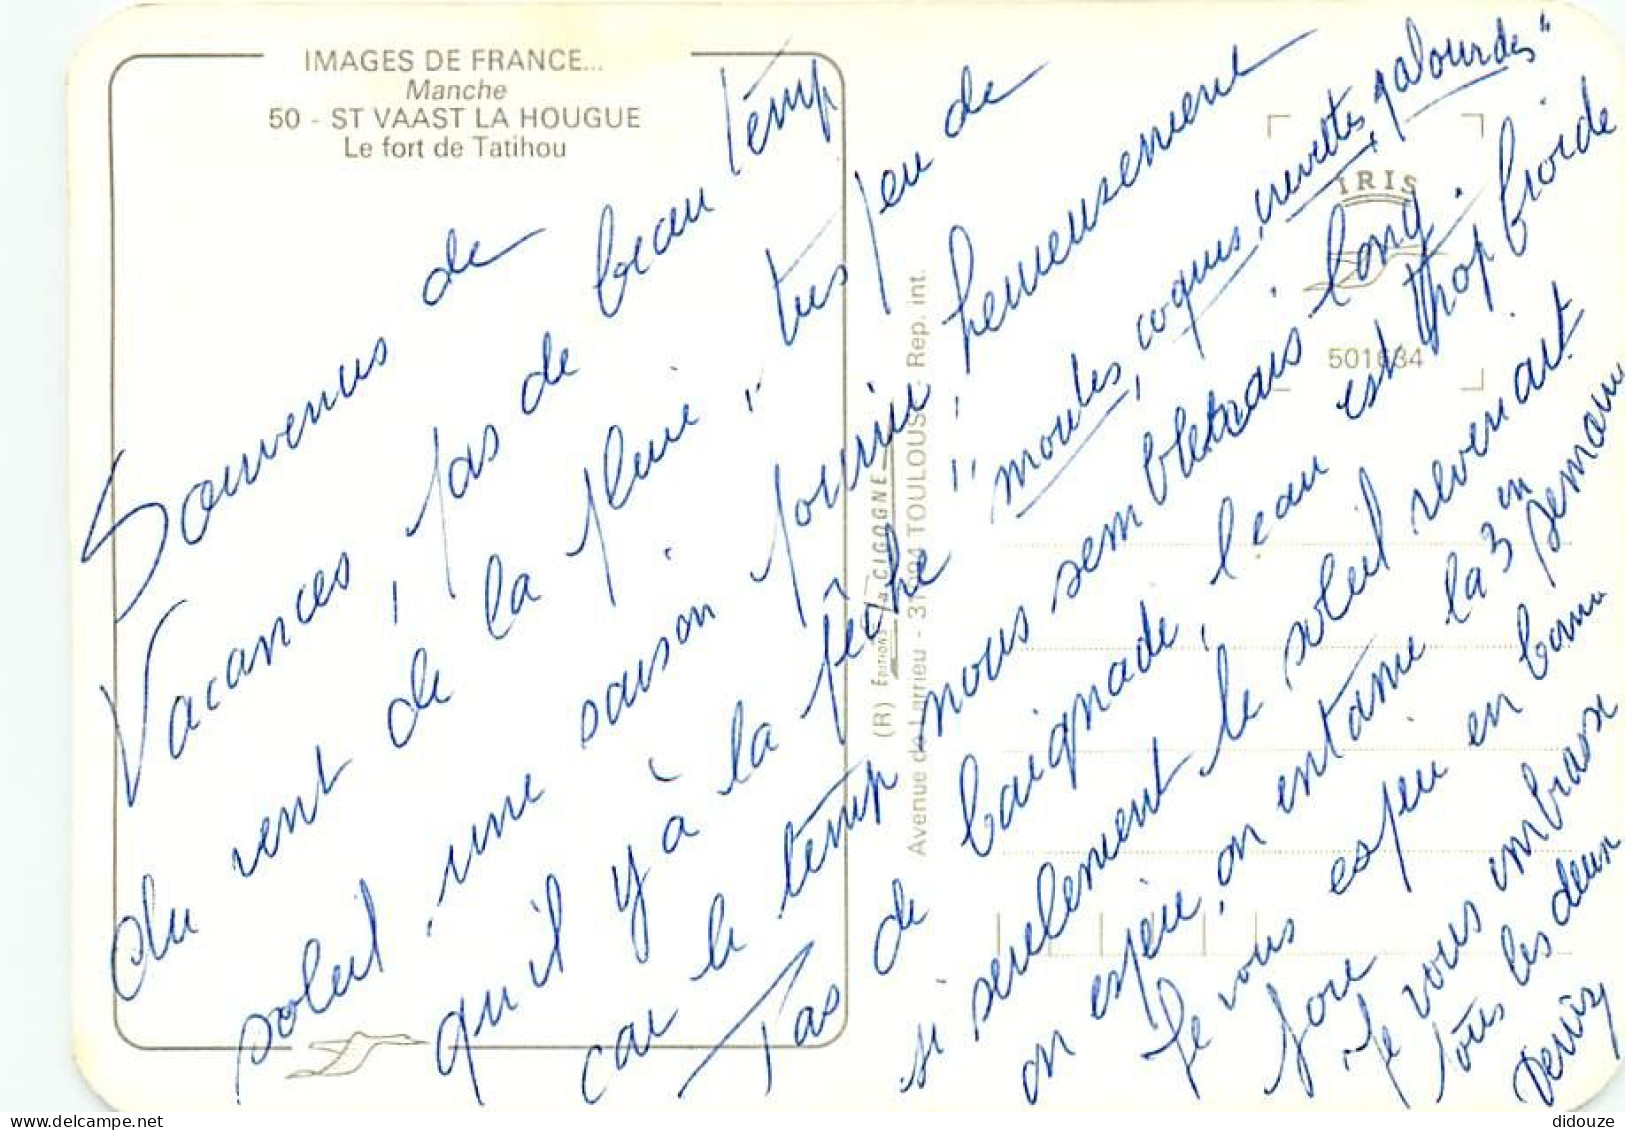 IMAGES DE FRANCE...
Manche
50 - ST VAAST LA HOUGUE
Le fort de Tatihou
Souvenus de
Vacances, pas de beau temp
du vent de la pluie, très peu de
soleil, une saison pourrie, heureusement
qu'il y à la pêche, "moules, coques, crevettes, palourdes"
car le temp nous sembletrais long.
Pas de baignade, l'eau est trop froide
si seulement le soleil revenait
on espère, on entame la 3 em semaine
Je vous espeu en bonne
fore
Je vous embrasse
tous les deux
Denisy
(R) EDITIONS "La CIGOGNE"
Avenue de Larrieu - 31094 TOULOUSE - Rep. int.
IRIS
501634
didouze